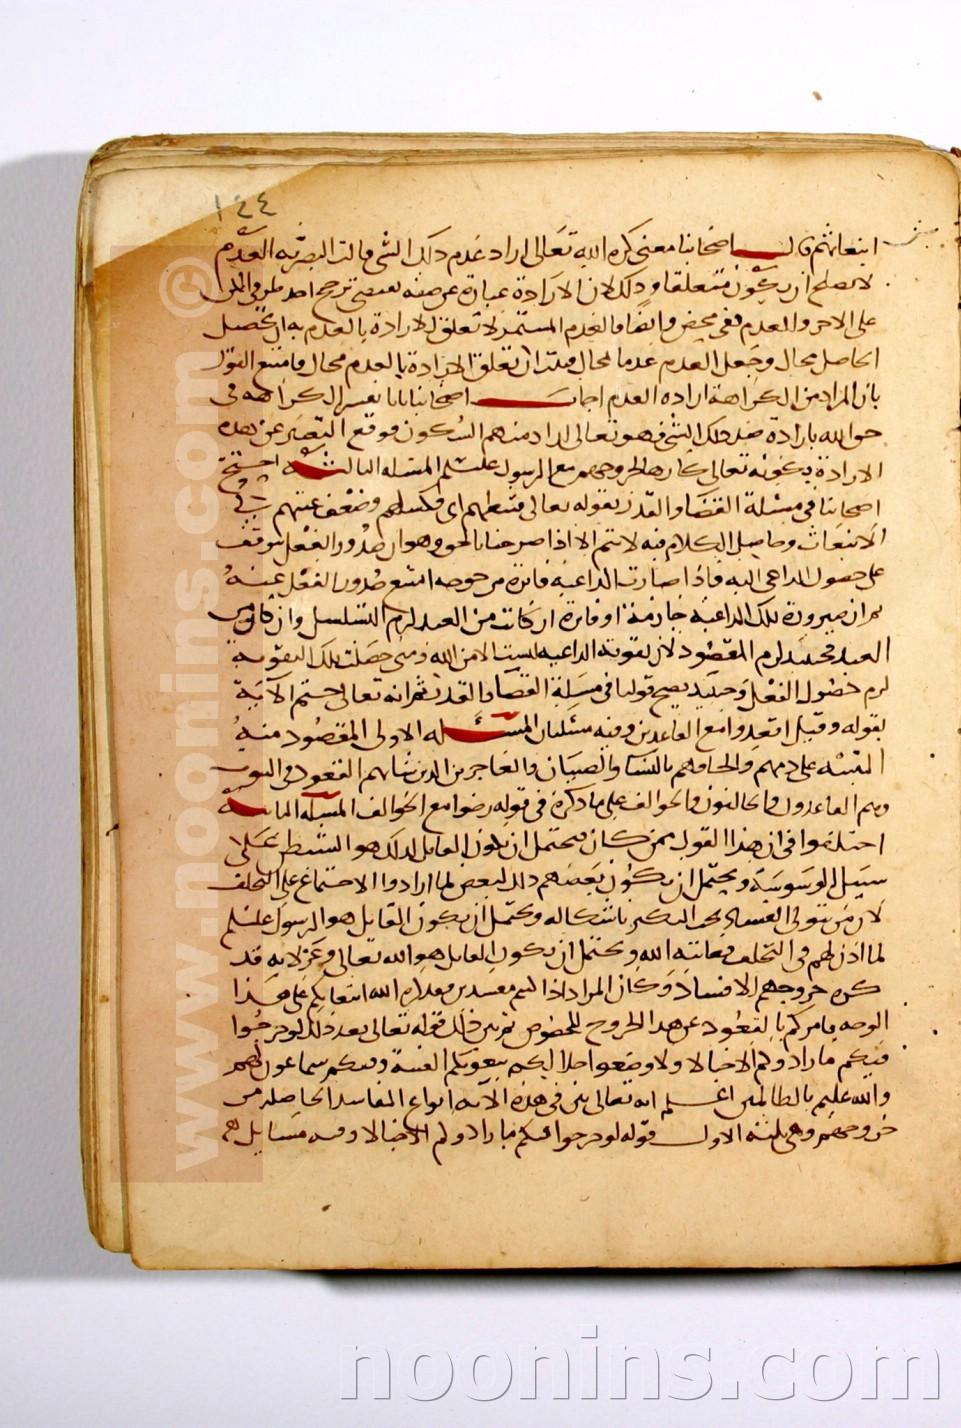 ١٤٤
انبعاثهم قال اصحابنا معنى كره الله تعالى اراد عدم ذلك الشي قالت البصرية العدم
لا يصلح ان يكون متعلقا وذلك لان الارادة عبارة عن صفة تقتضي ترجيح احد طرفي الممكن
على الاخر والعدم نفي محض وايضا فالعدم المستمر لا تعلق للارادة بالعدم به لان تحصيل
الحاصل محال وجعل العدم عدما محال فثبت ان تعلق الارادة بالعدم محال فامتنع القول
بان المراد من الكراهة ارادة العدم اجاب اصحابنا بانا نفسر الكراهة في
حق الله بارادة ضد ذلك الشي فهو تعالى اراد منهم السكون فوقع التعبير عن هذه
الارادة بكونه تعالى كارها لخروجهم مع الرسول عليه السلم المسئلة الثالثة احتج
اصحابنا في مسئلة القضا والقدر بقوله تعالى فثبطهم اى فكسلهم وضعف رغبتهم في
الانبعاث وحاصل الكلام فيه لا يتم الا اذا صرحنا بالحق وهو ان صدور الفعل يتوقف
على حصول الداعي اليه فاذا صارت الداعية فاترة مرجوحة امتنع صدور الفعل عنه
ثم ان صيرورة تلك الداعية جازمة او فاترة ان كانت من العبد لزم التسلسل وان كانت من
العبد فحينئذ لزم المقصود لان تقوية الداعية ليست الا من الله ومتى حصلت تلك التقوية
لزم حصول الفعل وحينئذ يصح قولنا في مسئلة القضا والقدر ثم انه تعالى ختم الاية
بقوله وقيل اقعدوا مع القاعدين وفيه مسئلتان المسئلة الاولى المقصود منه
التنبيه على ذمهم والحاقهم بالنسا والصبيان والعاجزين الذين شانهم القعود في البيوت
وهم القاعدون والخالفون والخوالف على ما ذكره في قوله رضوا مع الخوالف المسئلة الثانية
اختلفوا في ان هذا القول ممن كان فيحتمل ان يكون القايل لذلك هو الشيطان على
سبيل الوسوسة ويحتمل ان يكون بعضهم قال ذلك لبعض لما ارادوا الاجتماع على التخلف
لان من يتولى الفساد يحب التكثير باشكاله ويحتمل ان يكون القايل هو الرسول عليه السلم
لما اذن لهم في التخلف فعاتبه الله ويحتمل ان يكون القايل هو الله تعالى وعز لانه قد
كره خروجهم للافساد وكان المراد اذا كنتم مفسدين فقد كره الله انبعاثكم على هذا
الوجه فامركم بالقعود عن هذا الخروج المخصوص ثم بين ذلك قوله تعالى بعد ذلك لو خرجوا
فيكم ما زادوكم الا خبالا ولاوضعوا خلالكم يبغونكم الفتنة وفيكم سماعون لهم
والله عليم بالظالمين اعلم انه تعالى بين في هذه الاية انواع المفاسد الحاصلة من
خروجهم وهي ثلثة الاول قوله لو خرجوا فيكم ما زادوكم الا خبالا وفيه مسايل
www.noonins.com©
noonins.com